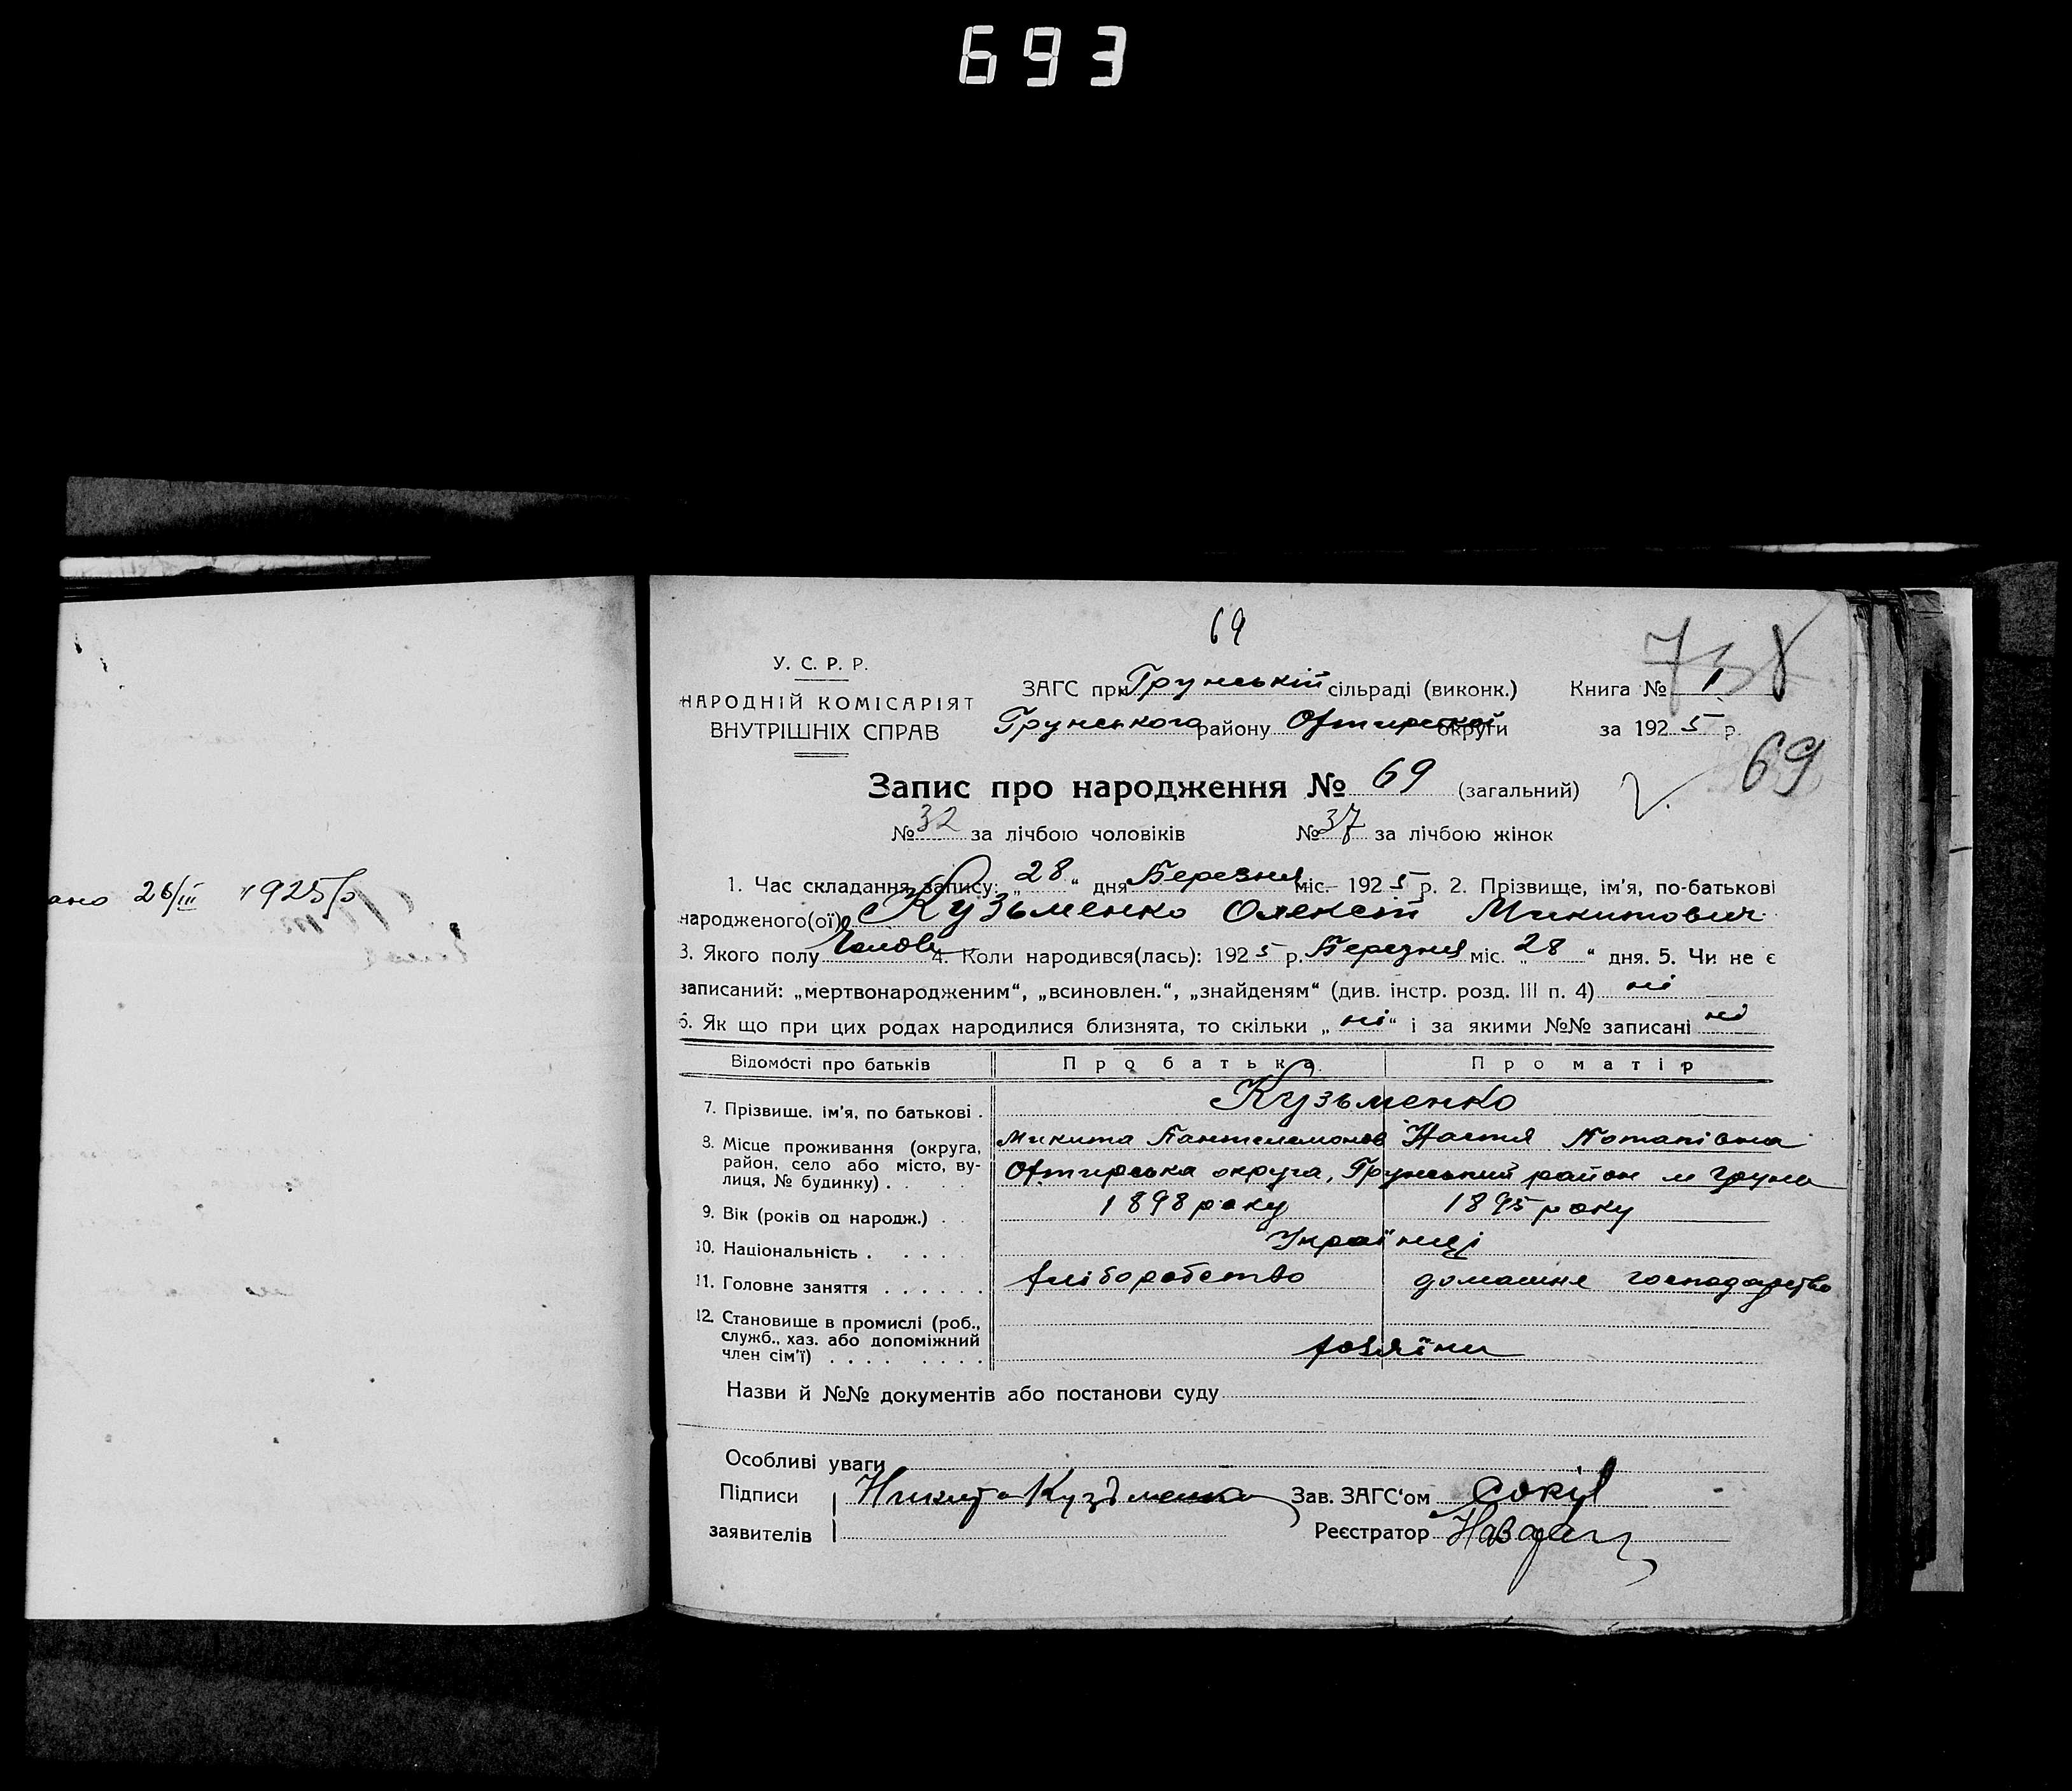 693
ано 26/III 1925 р
69
738
У. С. Р. Р.
НАРОДНІЙ КОМІСАРІЯТ
ВНУТРІШНІХ СПРАВ
ЗАГС при Грунській сільраді (виконк.) Книга № 1
Грунського району Охтирської округи за 1925 р.
69
Запис про народження № 69 (загальний)
№ 32 за лічбою чоловіків № 37 за лічбою жінок
1. Час складання запису: „28“ дня Березня міс. 1925 р. 2. Прізвище, ім'я, по-батькові
народженого(ої) Кузьменко Олексій Микитович
3. Якого полу 4. Коли народився(лась): 1925 р. Березня міс. „28“ дня. 5. Чи не є
записаний: „мертвонародженим“, „всиновлен.“, „знайденям“ (див. інстр. розд. III п. 4) ні
6. Як що при цих родах народилися близнята, то скільки „ні“ і за якими №№ записані ні
Відомості про батьків Про батька Про матір
7. Прізвище, ім'я, по батькові . Кузьменко
Микита Пантелемонов Настя Потапівна
8. Місце проживання (округа,
район, село або місто, ву-
лиця, № будинку) . . . . Охтирська округа, Грунський район м Груна
9. Вік (років од народж.) . . 1898 року 1895 року
10. Національність . . . . Українці
11. Головне заняття . . . . . . хліборобство домашне господарство
12. Становище в промислі (роб.,
служб., хаз. або допоміжний
член сім'ї) . . . . . . . . хозяїни
Назви й №№ документів або постанови суду
Особливі уваги
Підписи Никита Кузьменко Зав. ЗАГС'ом Сокіл
заявителів Реєстратор